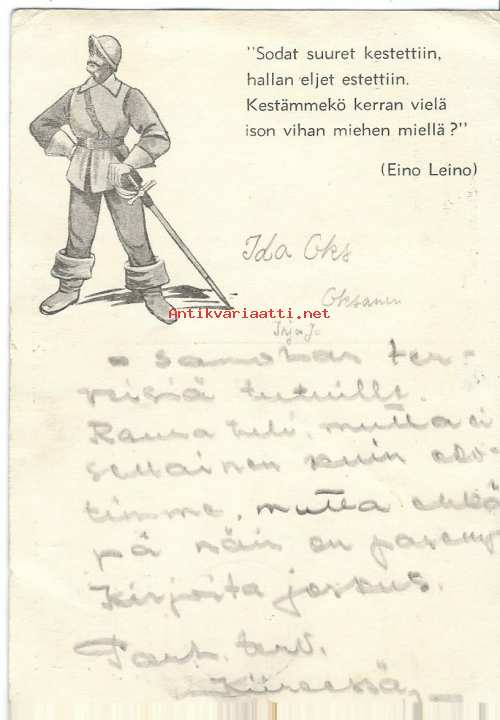 "Sodat suuret kestettiin,
hallan eljet estettiin.
Kestämmekö kerran vielä
ison vihan miehen miellä?"
(Eino Leino)
Ida Oks
Oksanen
Antikvariaatti.net
- sanokaa ter-
veisiä tutuille.
Rauha tuli, mutta ei
sellainen kuin odo-
timme, mutta ehkä
pä näin on parempi
Kirjoita joskus.
Part. terv.
Kiireessä,